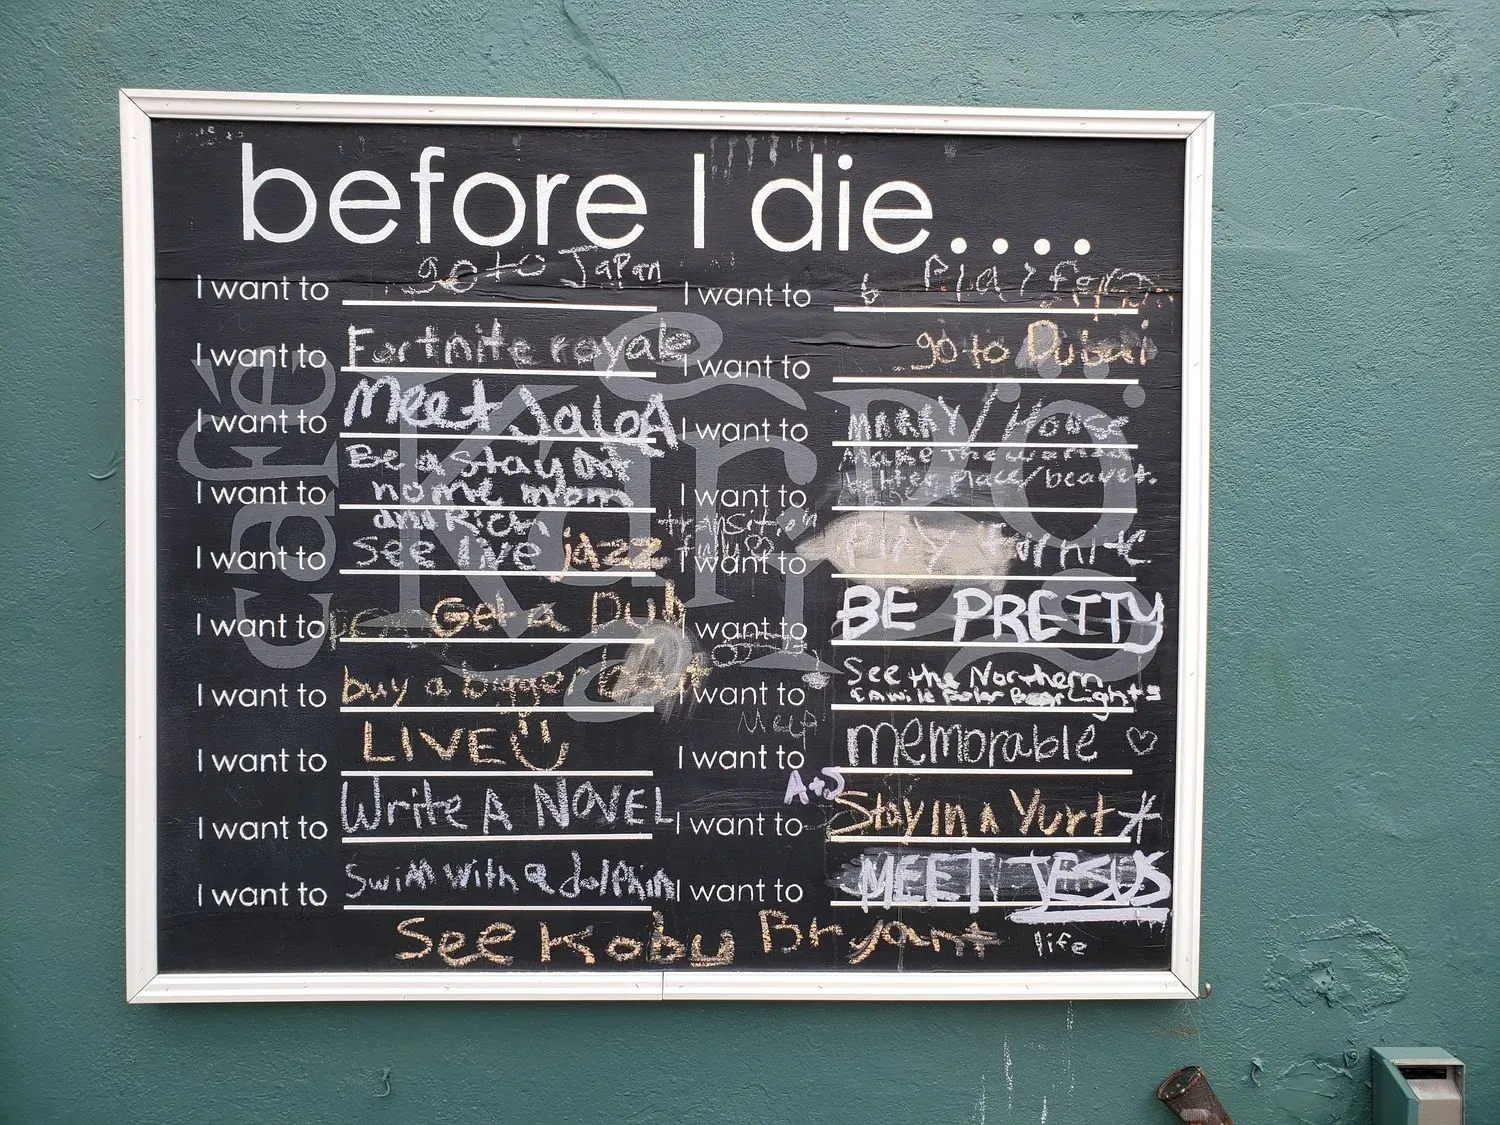 before I die....
I want to go to Japan
I want to Fortnite royale
I want to Meet JaloA
I want to Be a stay at
home mom
and Rich
I want to see live jazz
I want to Get a Dub
I want to buy a bigger
I want to LIVE
I want to Write A NOVEL
I want to Swim with a dolphin
See Kobu Bryant
I want to
I want to go to Dubai
I want to MARRY/House
I want to Make The World
better Place/
transition
I want to PlAY fornite
I want to BE PRETTY
I want to See the Northern
Lights
I want to memorable ♡
A+J
I want to Stay In A Yurt
I want to MEET JESUS
life
café
KarDö